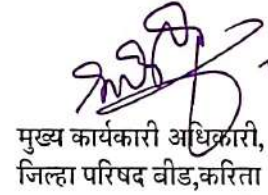 मुख्य कार्यकारी अधिकारी,
जिल्हा परिषद वीड,करिता